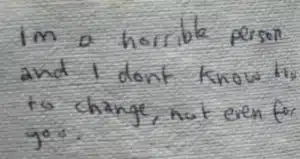 Im a horrible person
and I dont know how
to change, not even for
you.